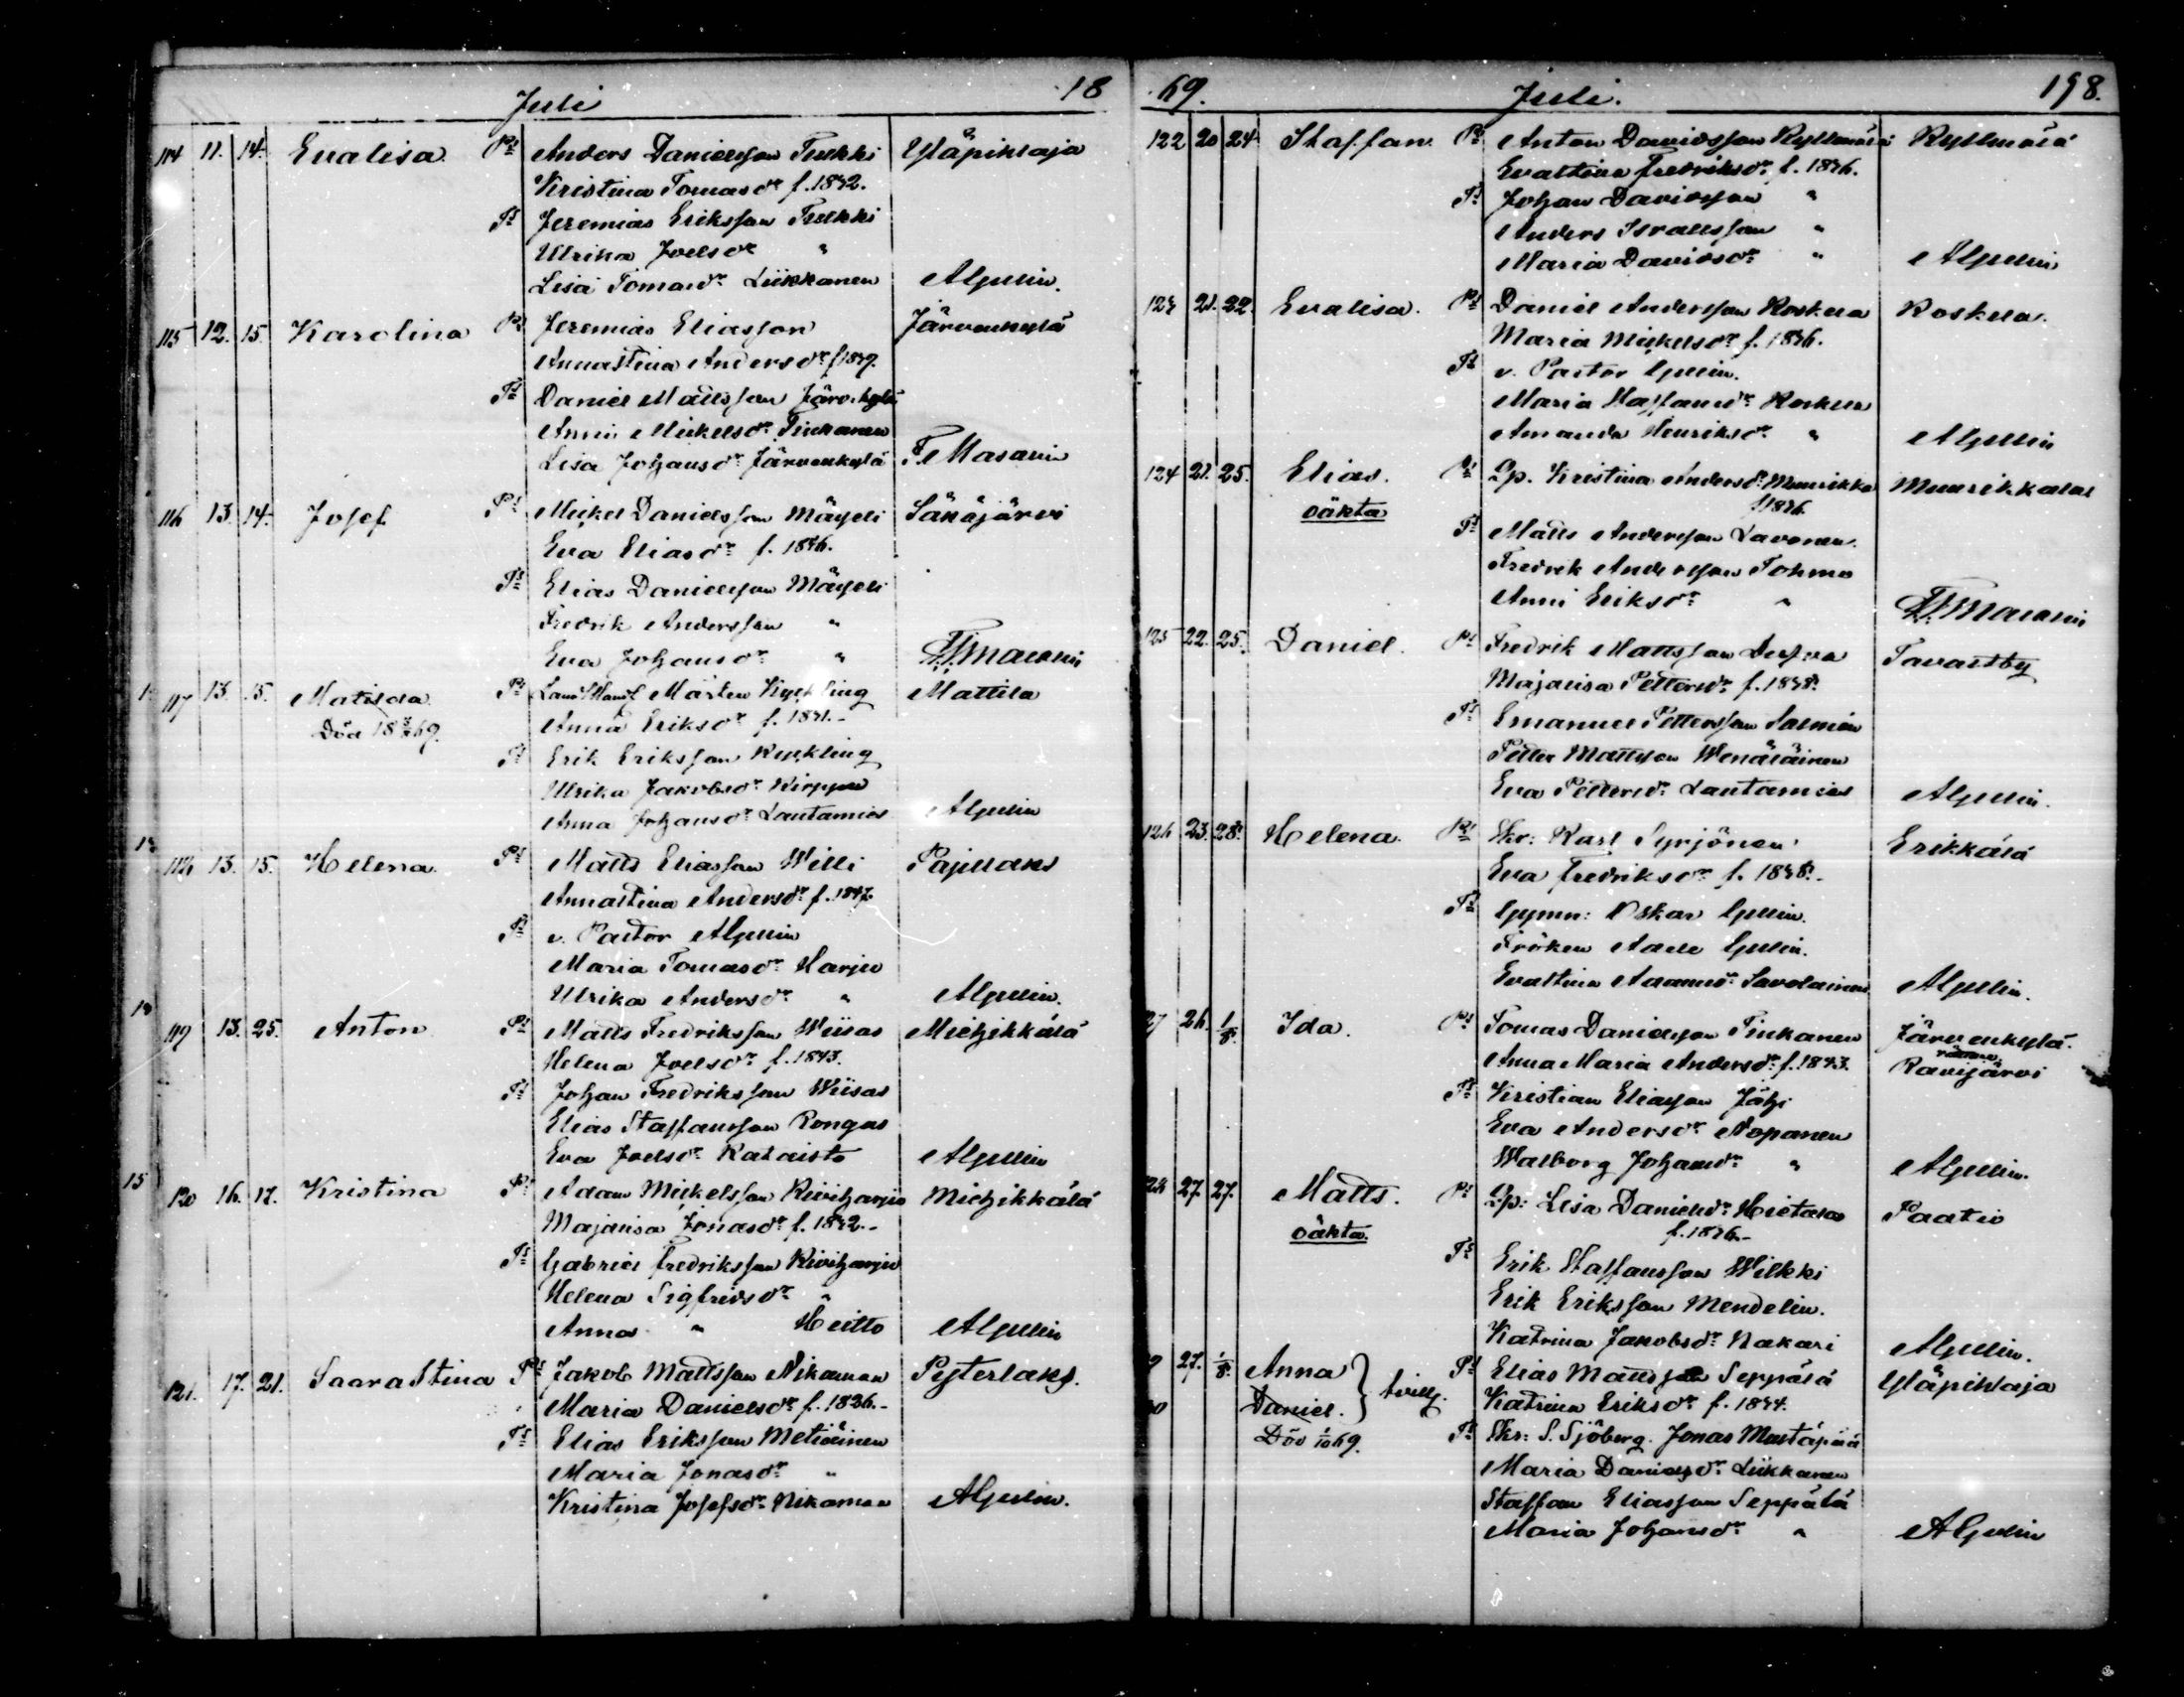 Juli 18
114 11. 14. Evalisa Pr Anders Danielsson Turkki Yläpihlaja
Kristina Tomasdr f. 1842.
Ts Jeremias Eriksson Turkki
Ulrika Joelsdr "
Lisa Tomasdr Liikkanen AGullin.
115 12. 15. Karolina Pr Jeremias Eliasson Järvenkylä
Annastina Andersdr f. 1839.
Ts Daniel Mattsson Järv.kylä
Anni Mickelsdr Tinkanen
Lisa Johansdr Järvenkylä F. Masalin
116 13. 14. Josef Pr Mickel Danielsson Mäyeli Sänäjärvi
Eva Eliasdr f. 1846.
Ts Elias Danielsson Mäyeli
Fredrik Andersson "
Eva Johansdr "
117 13. 15. Matilda Pr Mårten Kyckling Mattila
Död 69. Anna Eriksdr f. 1841.-
Ts Erik Eriksson Kyckling
Ulrika Jakobsdr Kirppu
Anna Johansdr Lautamies AGullin
118 13. 15. Helena Pr Matts Eliasson Willi Pajulaks
Annastina Andersdr f. 1847.
Ts v. Pastor AGullin
Maria Tomasdr Harju
Ulrika Andersdr " AGullin.
119 13. 25. Anton Pr Matts Fredriksson Wiisas Miehikkälä
Helena Joelsdr f. 1843.
Ts Johan Fredriksson Wiisas
Elias Staffansson Rongas
Eva Joelsdr Kataisto AGullin
120 16. 17. Kristina Pr Adam Mickelsson Kiviharju Miehikkälä
Majalisa Jonasdr f. 1842.-
Ts Gabriel Fredriksson Kiviharju
Helena Sigfridsdr "
Anna " Heitto AGullin
121. 17. 21. Saara Stina Pr Jakob Mattsson Nikaman Pyterlaks.
Maria Danielsdr f. 1826.-
Ts Elias Eriksson Metiäinen
Maria Jonasdr "
Kristina Josefsdr Nikaman AGullin.
69. Juli. 198.
122 20 24 Staffan Pr Anton Davidsson Kyllmälä Kyllmälä
Evastina Fredriksdr f. 1846.
Ts Johan Davidsson "
Anders Israelsson "
Maria Davidsdr " AGullin
123 21. 22. Evalisa. Pr Daniel Andersson Koskela Koskela.
Maria Mickelsdr f. 1836.
Ts v. Pastor Gullin.
Maria Staffansdr Koskela
Amanda Henriksdr " AGullin
124 21. 25. Elias. Pr Qp. Kristina Andersdr Muurikka Muurikkala
oäkta
Ts Matts Andersson Lavonen.
Fredrik Andersson Tohmo
Anni Eriksdr "
125 22. 25. Daniel. Pr Fredrik Mattsson Tavastby
Majalisa Pettersdr f. 1838.
Ts Emanuel Pettersson Salmén
Petter Mattsson Wenäläinen
Eva Pettersdr Lautamies AGullin.
126 23. 28. Helena. Pr Skr: Karl Syrjönen Erikkälä
Eva Fredriksdr f. 1838.-
Ts Gymn: Oskar Gullin.
Fröken Adele Gullin.
Evastina Adamsdr Savolainen AGullin.
27 26. 1/8. Ida. Pr Tomas Danielsson Tinkanen Järvenkylä.
Anna Maria Andersdr f. 1843. Ravijärvi
Ts Kristian Eliasson Jähi
Eva Andersdr Nopanen
Walborg Johansdr " AGullin.
28 27. 27. Matts. Pr Qp: Lisa Danielsdr Hietala Paatio
oäkta. f. 1836.-
Ts Erik Staffansson Wilkki
Erik Eriksson Mendelin.
Katrina Jakobsdr Nakari AGullin.
9 27. 1/8. Anna } tvill. Pr Elias Mattsson Seppälä Yläpihlaja
30 Daniel. Katrina Eriksdr f. 1844.
Död 1/10 69. Ts Skr: S. Sjöberg. Jonas Mustapää
Maria Danielsdr Liikkanen
Staffan Eliasson Seppälä
Maria Johansdr " AGullin